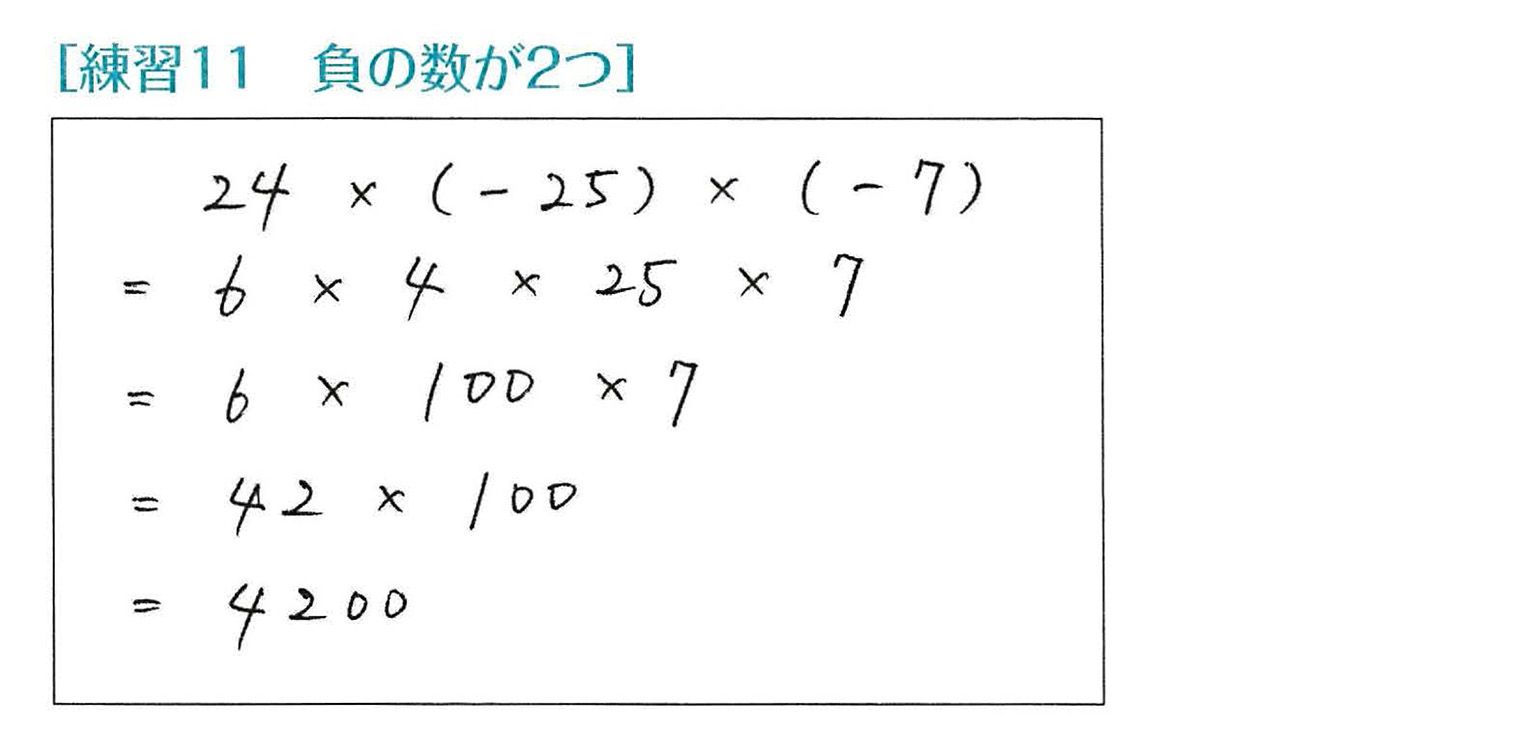 [練習11 負の数が2つ]
24 × (-25) × (-7)
= 6 × 4 × 25 × 7
= 6 × 100 × 7
= 42 × 100
= 4200